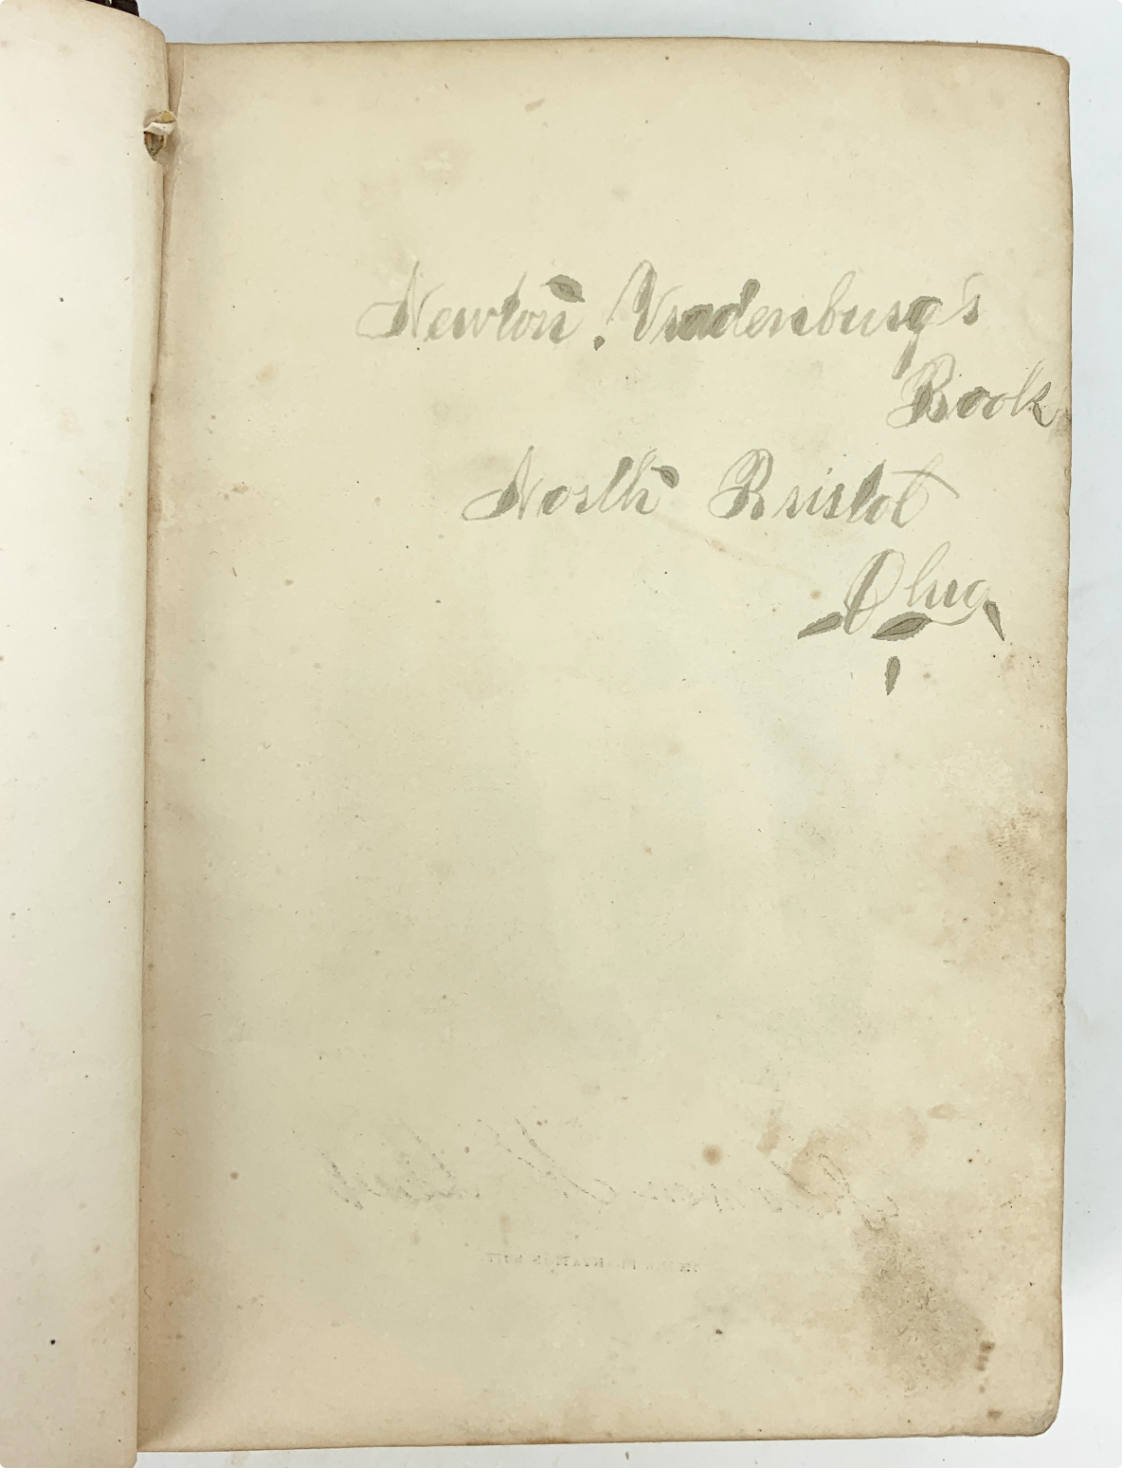 Newton Vradenburg's
Book
North Bristol
Ohio